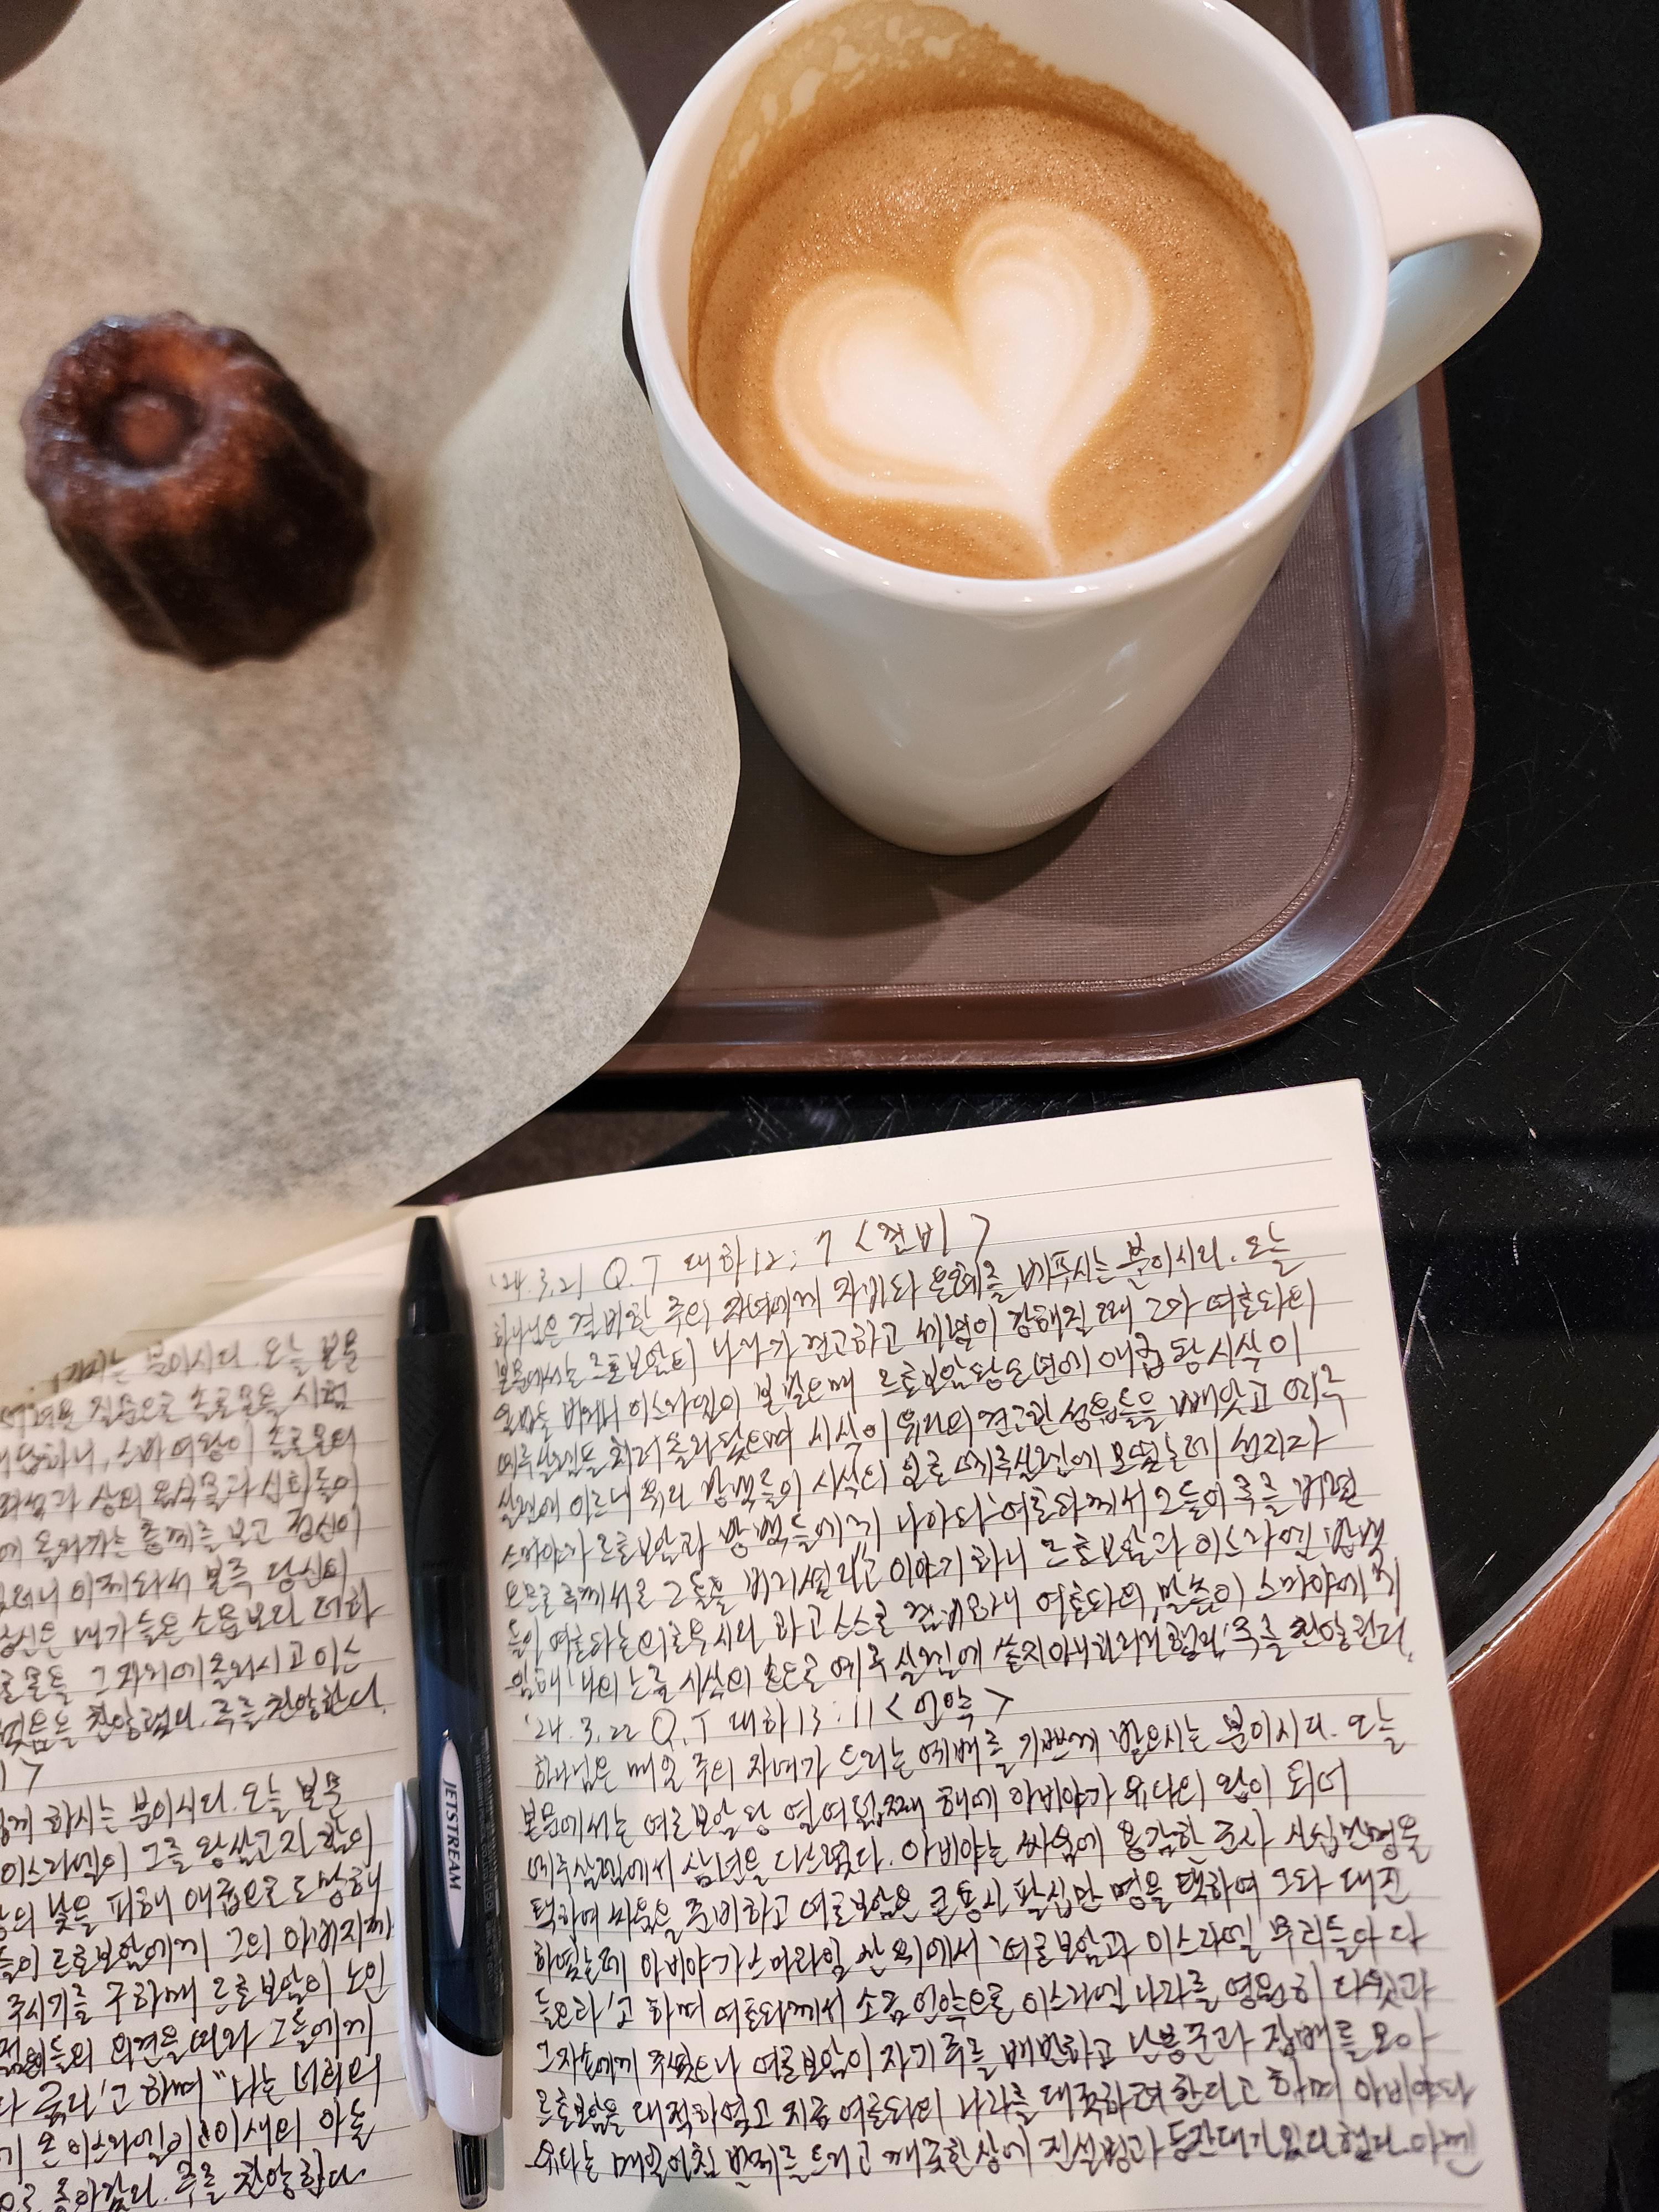 기시는 분이시다. 오늘 본문
어려운 질문으로 솔로몬을 시험
답하니, 스바 여왕이 솔로몬의
상의 음식물과 신하들의
에 올라가는 층계를 보고 정신이
이제 와서 본즉 당신의
당신은 내가 들은 소문보다 더하
로몬을 그 자리에 올리시고 이스
먹음을 찬양했다. 주를 찬양한다.
>
하시는 분이시다. 오늘 본문
이스라엘이 그를 왕 삼고자 함이
왕의 낯을 피해 애굽으로 도망해
들이 르호보암에게 그의 아버지께
주시기를 구하매 르호보암이 노인
젊은이들의 의견을 따라 그들에게
'고 하며 "나는 너희의
온 이스라엘이 이새의 아들
으로 돌아갔다. 주를 찬양한다.
JETSTREAM
'24.3.21 Q.T 대하12:7 <겸비>
하나님은 겸비한 주의 자녀에게 자비와 은혜를 베푸시는 분이시다. 오늘
본문에서는 르호보암의 나라가 견고하고 세력이 강해질 때 그가 여호와의
율법을 버리니 이스라엘이 본받으매 르호보암 왕 오년에 애굽 왕 시삭이
예루살렘을 치러 올라왔으며 시삭이 유다의 견고한 성읍들을 빼앗고 예루
살렘에 이르니 유다 방백들이 시삭의 일로 예루살렘에 모였는데 선지자
스마야가 르호보암과 방백들에게 나아와 '여호와께서 그들이 주를 버렸
으므로 주께서도 그들을 버리셨다'고 이야기하니 르호보암과 이스라엘 방백
들이 여호와는 의로우시다 라고 스스로 겸비하니 여호와의 말씀이 스마야에게
임해 '나의 노를 시삭의 손으로 예루살렘에 쏟지 아니하리라' 했다. 주를 찬양한다.
'24.3.22 Q.T 대하13:11 <언약>
하나님은 매일 주의 자녀가 드리는 예배를 기쁘게 받으시는 분이시다. 오늘
본문에서는 여로보암 왕 열여덟째 해에 아비야가 유다의 왕이 되어
예루살렘에서 삼년을 다스렸다. 아비야는 싸움에 용감한 군사 사십만명을
택하여 싸움을 준비하고 여로보암은 큰 용사 팔십만 명을 택하여 그와 대진
하였는데 아비야가 스마라임 산 위에서 '여로보암과 이스라엘 무리들아 다
들으라'고 하며 여호와께서 소금 언약으로 이스라엘 나라를 영원히 다윗과
그 자손에게 주셨으나 여로보암이 자기 주를 배반하고 난봉꾼과 잡배를 모아
르호보암을 대적하였고 지금 여호와의 나라를 대적하려 한다고 하며 아비야와
유다는 매일 아침 번제를 드리고 깨끗한 상에 진설병과 등잔대가 있다 했다.